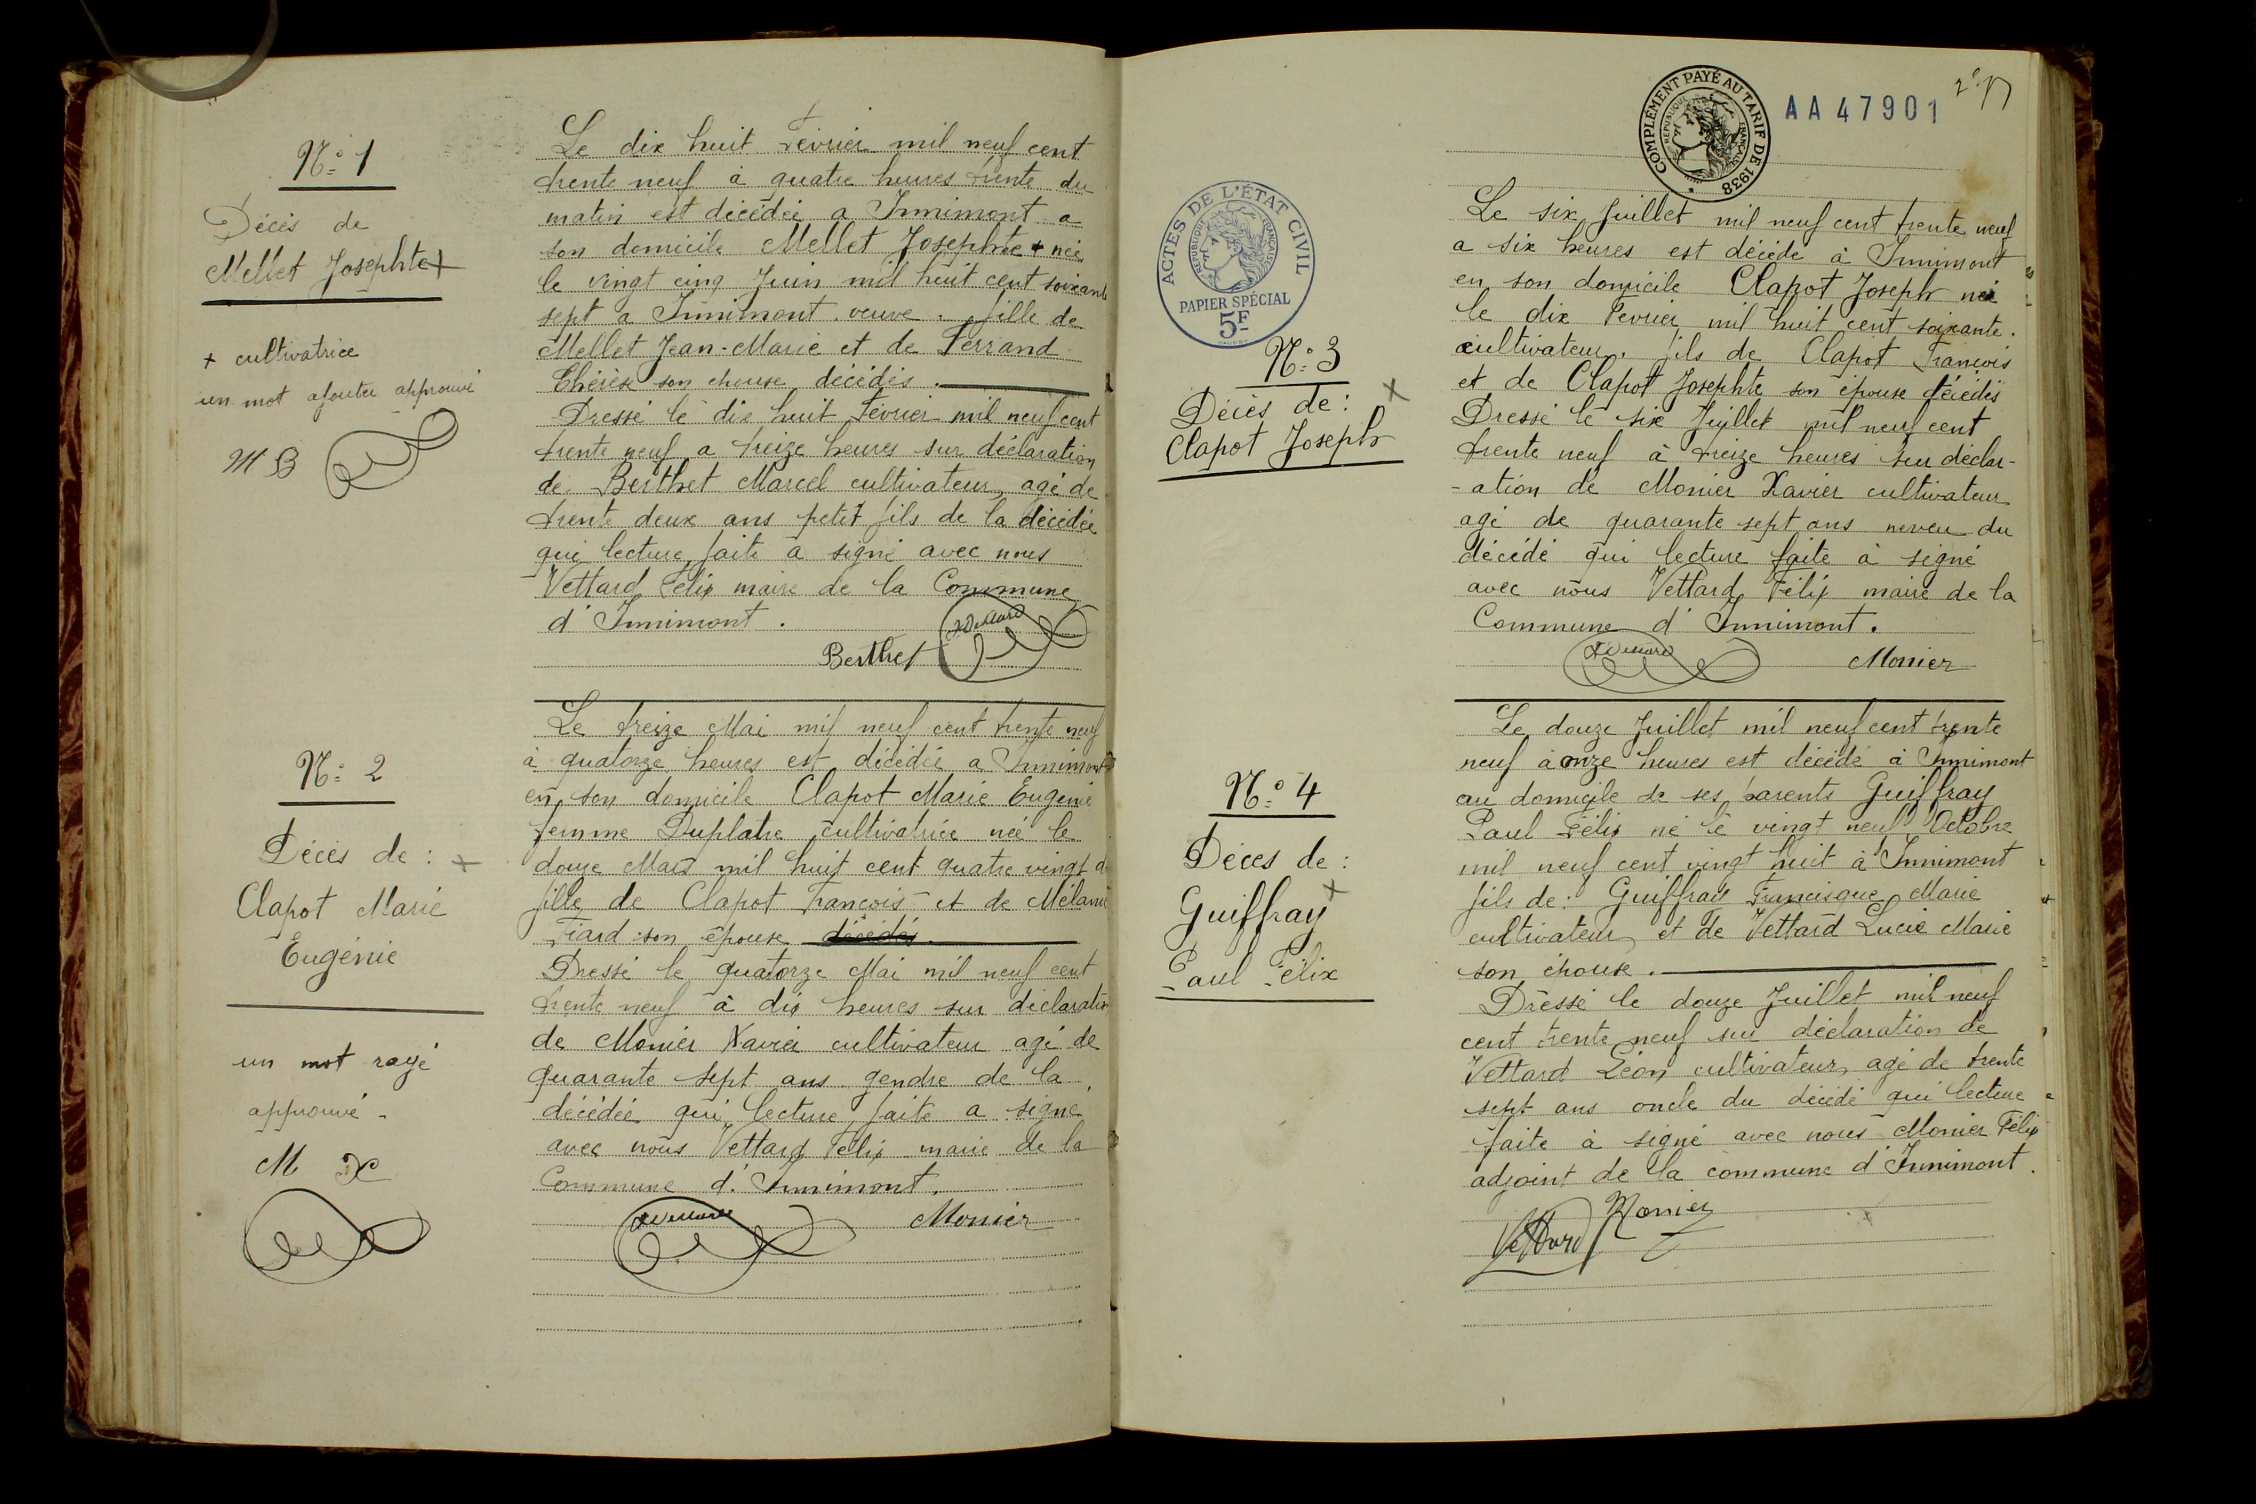 N° 1
Décès de
Mellet Josephte +
+ cultivatrice
un mot ajouter approuvé
M B
Le dix huit Février mil neuf cent
trente neuf à quatre heures trente du
matin est décédée a Innimont a
son domicile Mellet Josephte + née
le vingt cinq Juin mil huit cent soixante
sept a Innimont. veuve. fille de
Mellet Jean-Marie et de Ferrand
Thérèse son épouse décédés.
Dressé le dix huit Février mil neuf cent
trente neuf a treize heures sur déclaration
de Berthet Marcel cultivateur, agé de
trente deux ans petit fils de la décédée
qui lecture faite a signé avec nous
Vettard Félix maire de la Commune
d'Innimont.
Berthet
N° 2
Décès de : +
Clapot Marie
Eugénie
un mot rayé
approuvé -
M X
Le treize Mai mil neuf cent trente neuf
à quatorze heures est décédée a Innimont
en son domicile Clapot Marie Eugénie
femme Duplatre cultivatrice née le
douze Mars mil huit cent quatre vingt
fille de Clapot François et de Mélanie
Fiard son épouse décédés.
Dressé le quatorze Mai mil neuf cent
trente neuf à dix heures sur déclaration
de Monier Xavier cultivateur agé de
quarante sept ans gendre de la
décédée qui lecture faite a signé
avec nous Vettard Félix maire de la
Commune d'Innimont.
Monier
COMPLÉMENT PAYÉ AU TARIF DE 1938
RÉPUBLIQUE FRANÇAISE
AA 47901
ACTES DE L'ÉTAT CIVIL
RÉPUBLIQUE FRANÇAISE
PAPIER SPÉCIAL
5F
N° 3
Décès de : +
Clapot Joseph
Le six Juillet mil neuf cent trente neuf
a six heures est décédé à Innimont
en son domicile Clapot Joseph né
le dix Février mil huit cent soixante.
cultivateur. fils de Clapot François
et de Clapot Josephte son épouse décédés
Dressé le six Juillet mil neuf cent
trente neuf à treize heures sur déclar-
-ation de Monier Xavier cultivateur
agé de quarante sept ans neveu du
décédé qui lecture faite à signé
avec nous Vettard Félix maire de la
Commune d'Innimont.
Monier
N° 4
Décès de :
Guiffray +
Paul Félix
Le douze Juillet mil neuf cent trente
neuf à onze heures est décédé à Innimont
au domicile de ses parents Guiffray
Paul Félix né le vingt neuf Octobre
mil neuf cent vingt huit à Innimont
fils de : Guiffray Francisque Marie
cultivateur et de Vettard Lucie Marie
son épouse.
Dressé le douze Juillet mil neuf
cent trente neuf sur déclaration de
Vettard Léon cultivateur, agé de trente
sept ans oncle du décédé qui lecture
faite à signé avec nous Monier Félix
adjoint de la commune d'Innimont.
Monier
Vettard